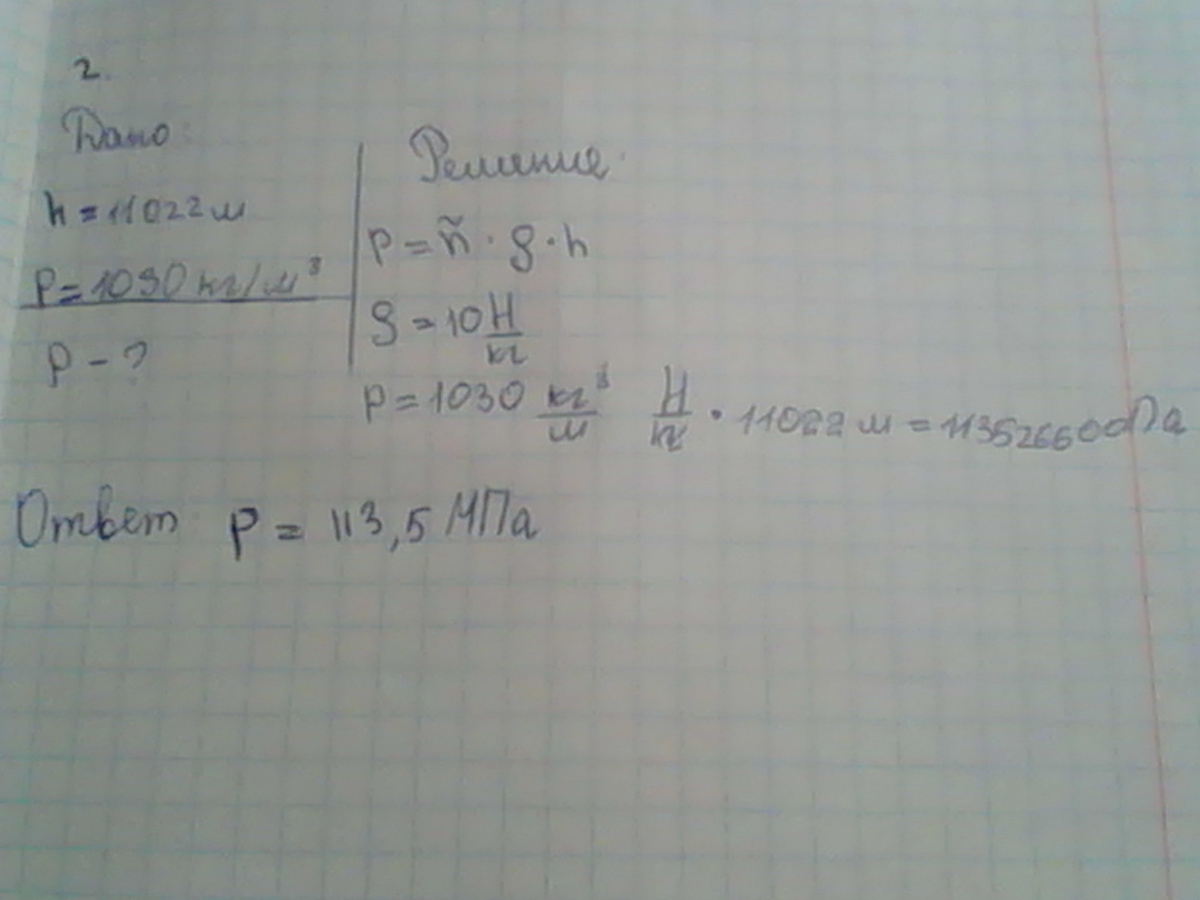 2.
Дано:
h = 11022 м
P = 1030 кг/м³
P - ?
Решение:
P = ñ · g · h
g = 10 Н/кг
P = 1030 кг³/м Н/кг · 11022 м = 113526600 Па
Ответ P = 113,5 МПа